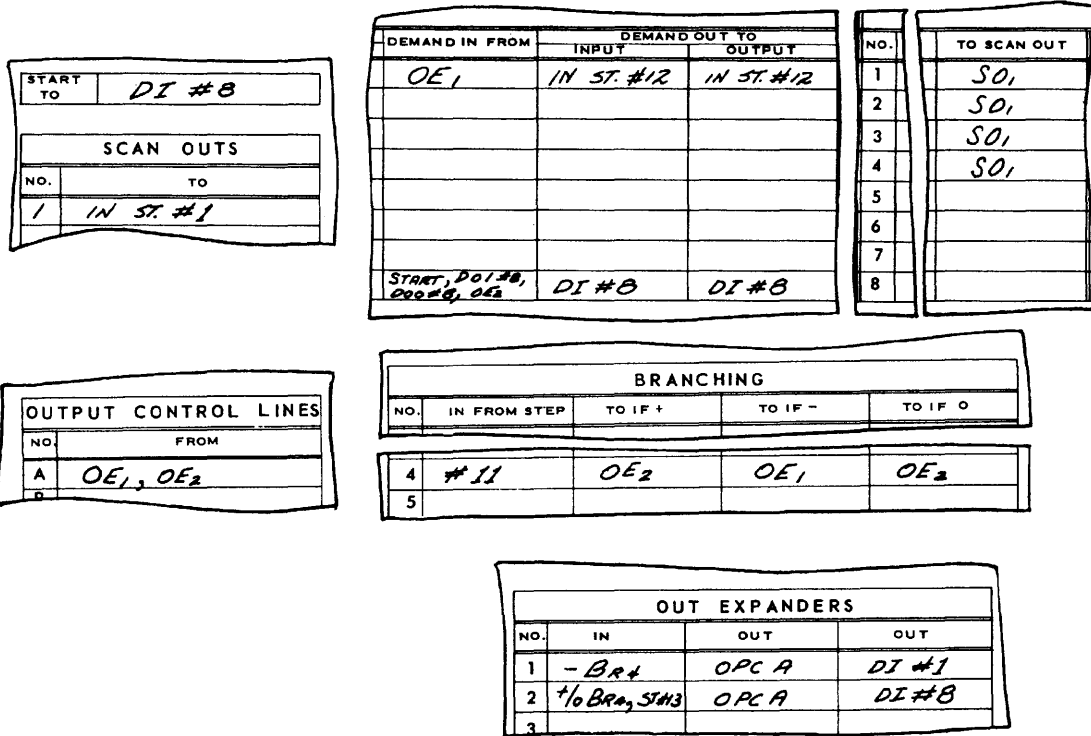 START TO DI #8
SCAN OUTS
NO. TO
1 IN ST. #1
DEMAND IN FROM DEMAND OUT TO
INPUT OUTPUT
OE1 IN ST. #12 IN ST. #12
START, DOI #8, DOO #8, OE2 DI #8 DI #8
NO. TO SCAN OUT
1 SO1
2 SO1
3 SO1
4 SO1
5
6
7
8
OUTPUT CONTROL LINES
NO. FROM
A OE1, OE2
BRANCHING
NO. IN FROM STEP TO IF + TO IF - TO IF 0
4 #11 OE2 OE1 OE2
5
OUT EXPANDERS
NO. IN OUT OUT
1 - BR4 OPC A DI #1
2 +/0 BR4, ST#13 OPC A DI #8
3